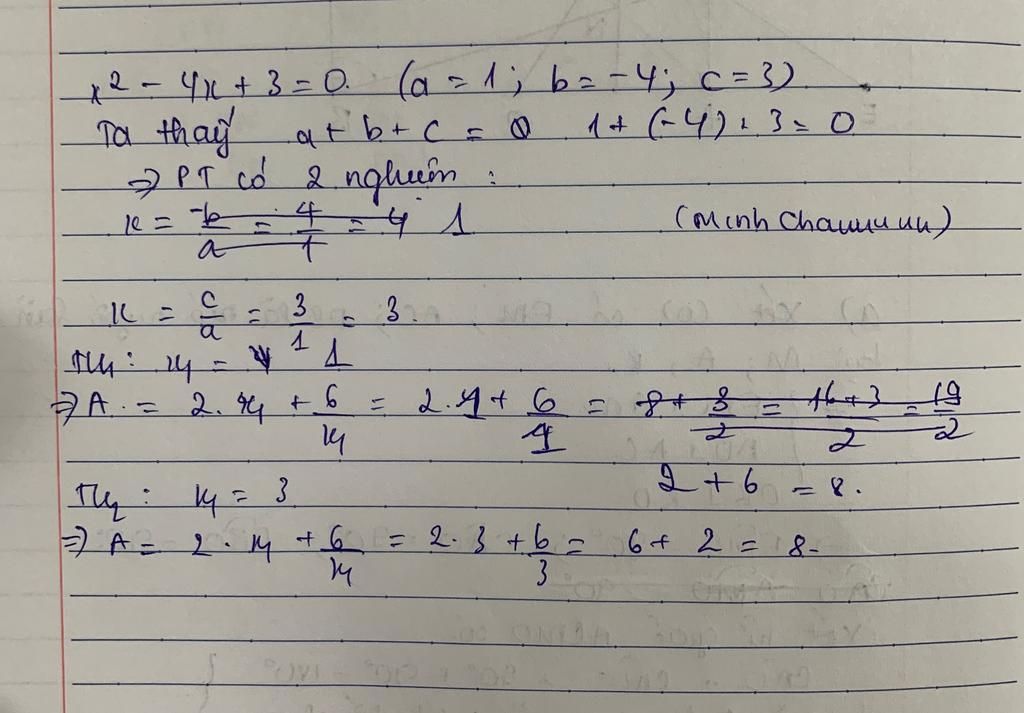 x² - 4x + 3 = 0. (a = 1; b = -4; c = 3)
Ta thấy a + b + c = 0 1 + (-4) + 3 = 0
⇒ PT có 2 nghiệm :
x = -b/a = 4/1 = 4 1 (Minh Chauuuuu)
x = c/a = 3/1 = 3.
TH1: x1 = 1
⇒ A = 2.x1 + 6/x1 = 2.1 + 6/1 = 8 + 3/2 = 16+3/2 = 19/2
2 + 6 = 8.
TH2: x1 = 3
⇒ A = 2.x1 + 6/x1 = 2.3 + 6/3 = 6 + 2 = 8.